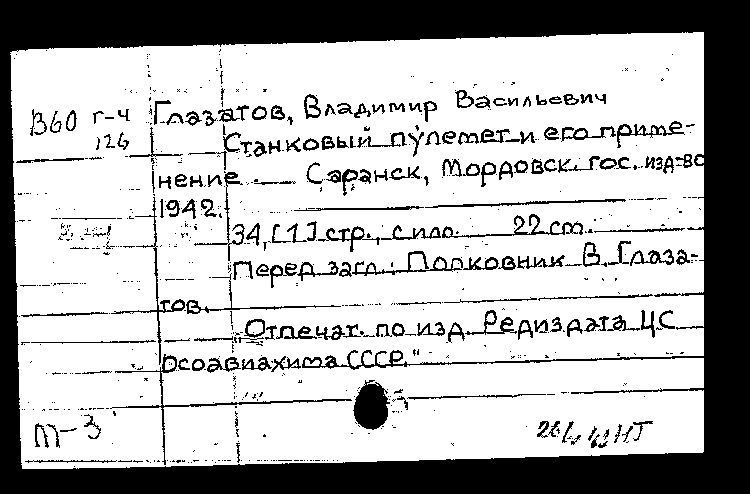 В60 Г-4
126
Глазатов, Владимир Васильевич
Станковый пулемет и его приме-
нение. — Саранск, Мордовск. гос. изд-во
1942.
34, [1] стр., с илл. 22 см.
Перед загл.: Полковник В. Глаза-
тов.
"Отпечат. по изд. Редиздата ЦС
Осоавиахима СССР."
т-3